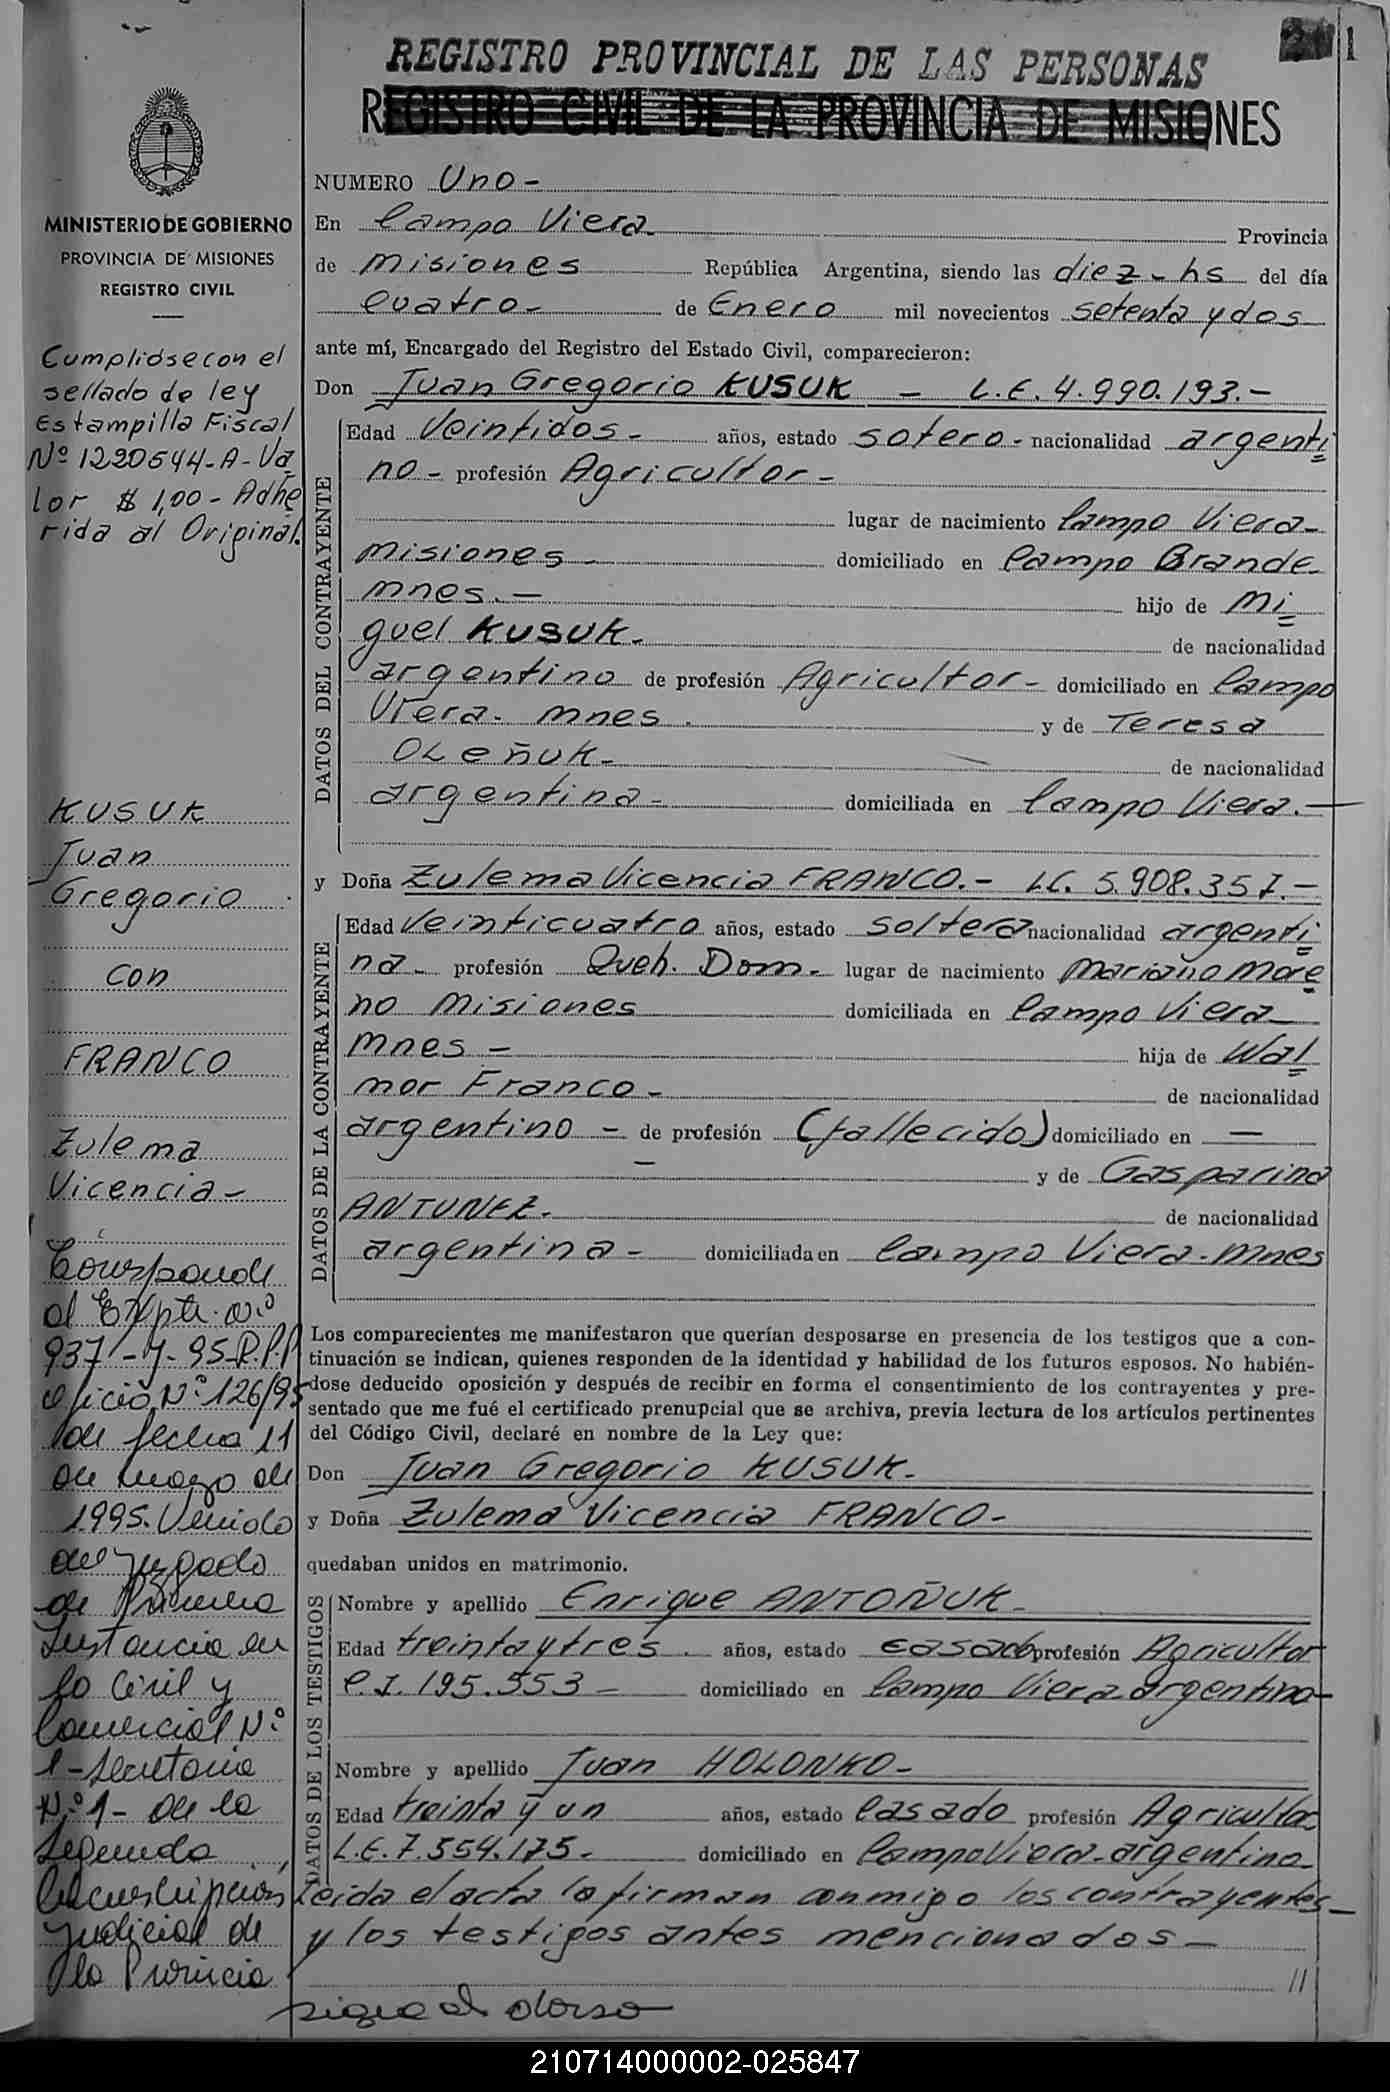 1
REGISTRO PROVINCIAL DE LAS PERSONAS
REGISTRO CIVIL DE LA PROVINCIA DE MISIONES
MINISTERIO DE GOBIERNO
PROVINCIA DE MISIONES
REGISTRO CIVIL
Cumplióse con el
sellado de ley
Estampilla Fiscal
Nº 1220544-A-Va
lor $ 1,00 - Adhe
rida al Original.
KUSUK
Juan
Gregorio
con
FRANCO
Zulema
Vicencia -
Corresponde
al Expte. Nº
937-Y-95-R.P.P
oficio Nº 126/95
de fecha 11
de mayo de
1995. Venido
del Juzgado
de Primera
Instancia en
lo Civil y
Comercial Nº
1 - Secretaria
Nº 1 - de la
Segunda
Circunscripcion
Judicial de
la Provincia
NUMERO Uno -
En Campo Viera - Provincia
de Misiones República Argentina, siendo las diez - hs del día
cuatro - de Enero mil novecientos setenta y dos
ante mí, Encargado del Registro del Estado Civil, comparecieron:
Don Juan Gregorio KUSUK - L.E. 4.990.193.-
DATOS DEL CONTRAYENTE
Edad Veintidos - años, estado sotero - nacionalidad argenti
no - profesión Agricultor -
lugar de nacimiento Campo Viera -
Misiones - domiciliado en Campo Grande -
Mnes. - hijo de Mi
guel KUSUK - de nacionalidad
argentino de profesión Agricultor - domiciliado en Campo
Viera. Mnes. y de Teresa
OLEÑUK - de nacionalidad
argentina - domiciliada en Campo Viera. -
y Doña Zulema Vicencia FRANCO. - LC. 5.908.357. -
DATOS DE LA CONTRAYENTE
Edad Veinticuatro años, estado soltera nacionalidad argenti
na - profesión Queh. Dom. - lugar de nacimiento Mariano More
no Misiones domiciliada en Campo Viera -
Mnes - hija de Wal
mor Franco - de nacionalidad
argentino - de profesión (fallecido) domiciliado en -
- y de Gasparina
ANTUNEZ - de nacionalidad
argentina - domiciliada en Campo Viera - Mnes
Los comparecientes me manifestaron que querían desposarse en presencia de los testigos que a con-
tinuación se indican, quienes responden de la identidad y habilidad de los futuros esposos. No habién-
dose deducido oposición y después de recibir en forma el consentimiento de los contrayentes y pre-
sentado que me fué el certificado prenupcial que se archiva, previa lectura de los artículos pertinentes
del Código Civil, declaré en nombre de la Ley que:
Don Juan Gregorio KUSUK -
y Doña Zulema Vicencia FRANCO -
quedaban unidos en matrimonio.
DATOS DE LOS TESTIGOS
Nombre y apellido Enrique ANTOÑUK -
Edad treinta y tres - años, estado casado profesión Agricultor
C.I. 195.553 - domiciliado en Campo Viera argentino -
Nombre y apellido Juan HOLONKO -
Edad treinta y un años, estado Casado profesión Agricultor
L.E. 7.554.175 - domiciliado en Campo Viera - argentino -
Leida el acta la firman conmigo los contrayentes -
y los testigos antes mencionados -
//
sigue al dorso
210714000002-025847